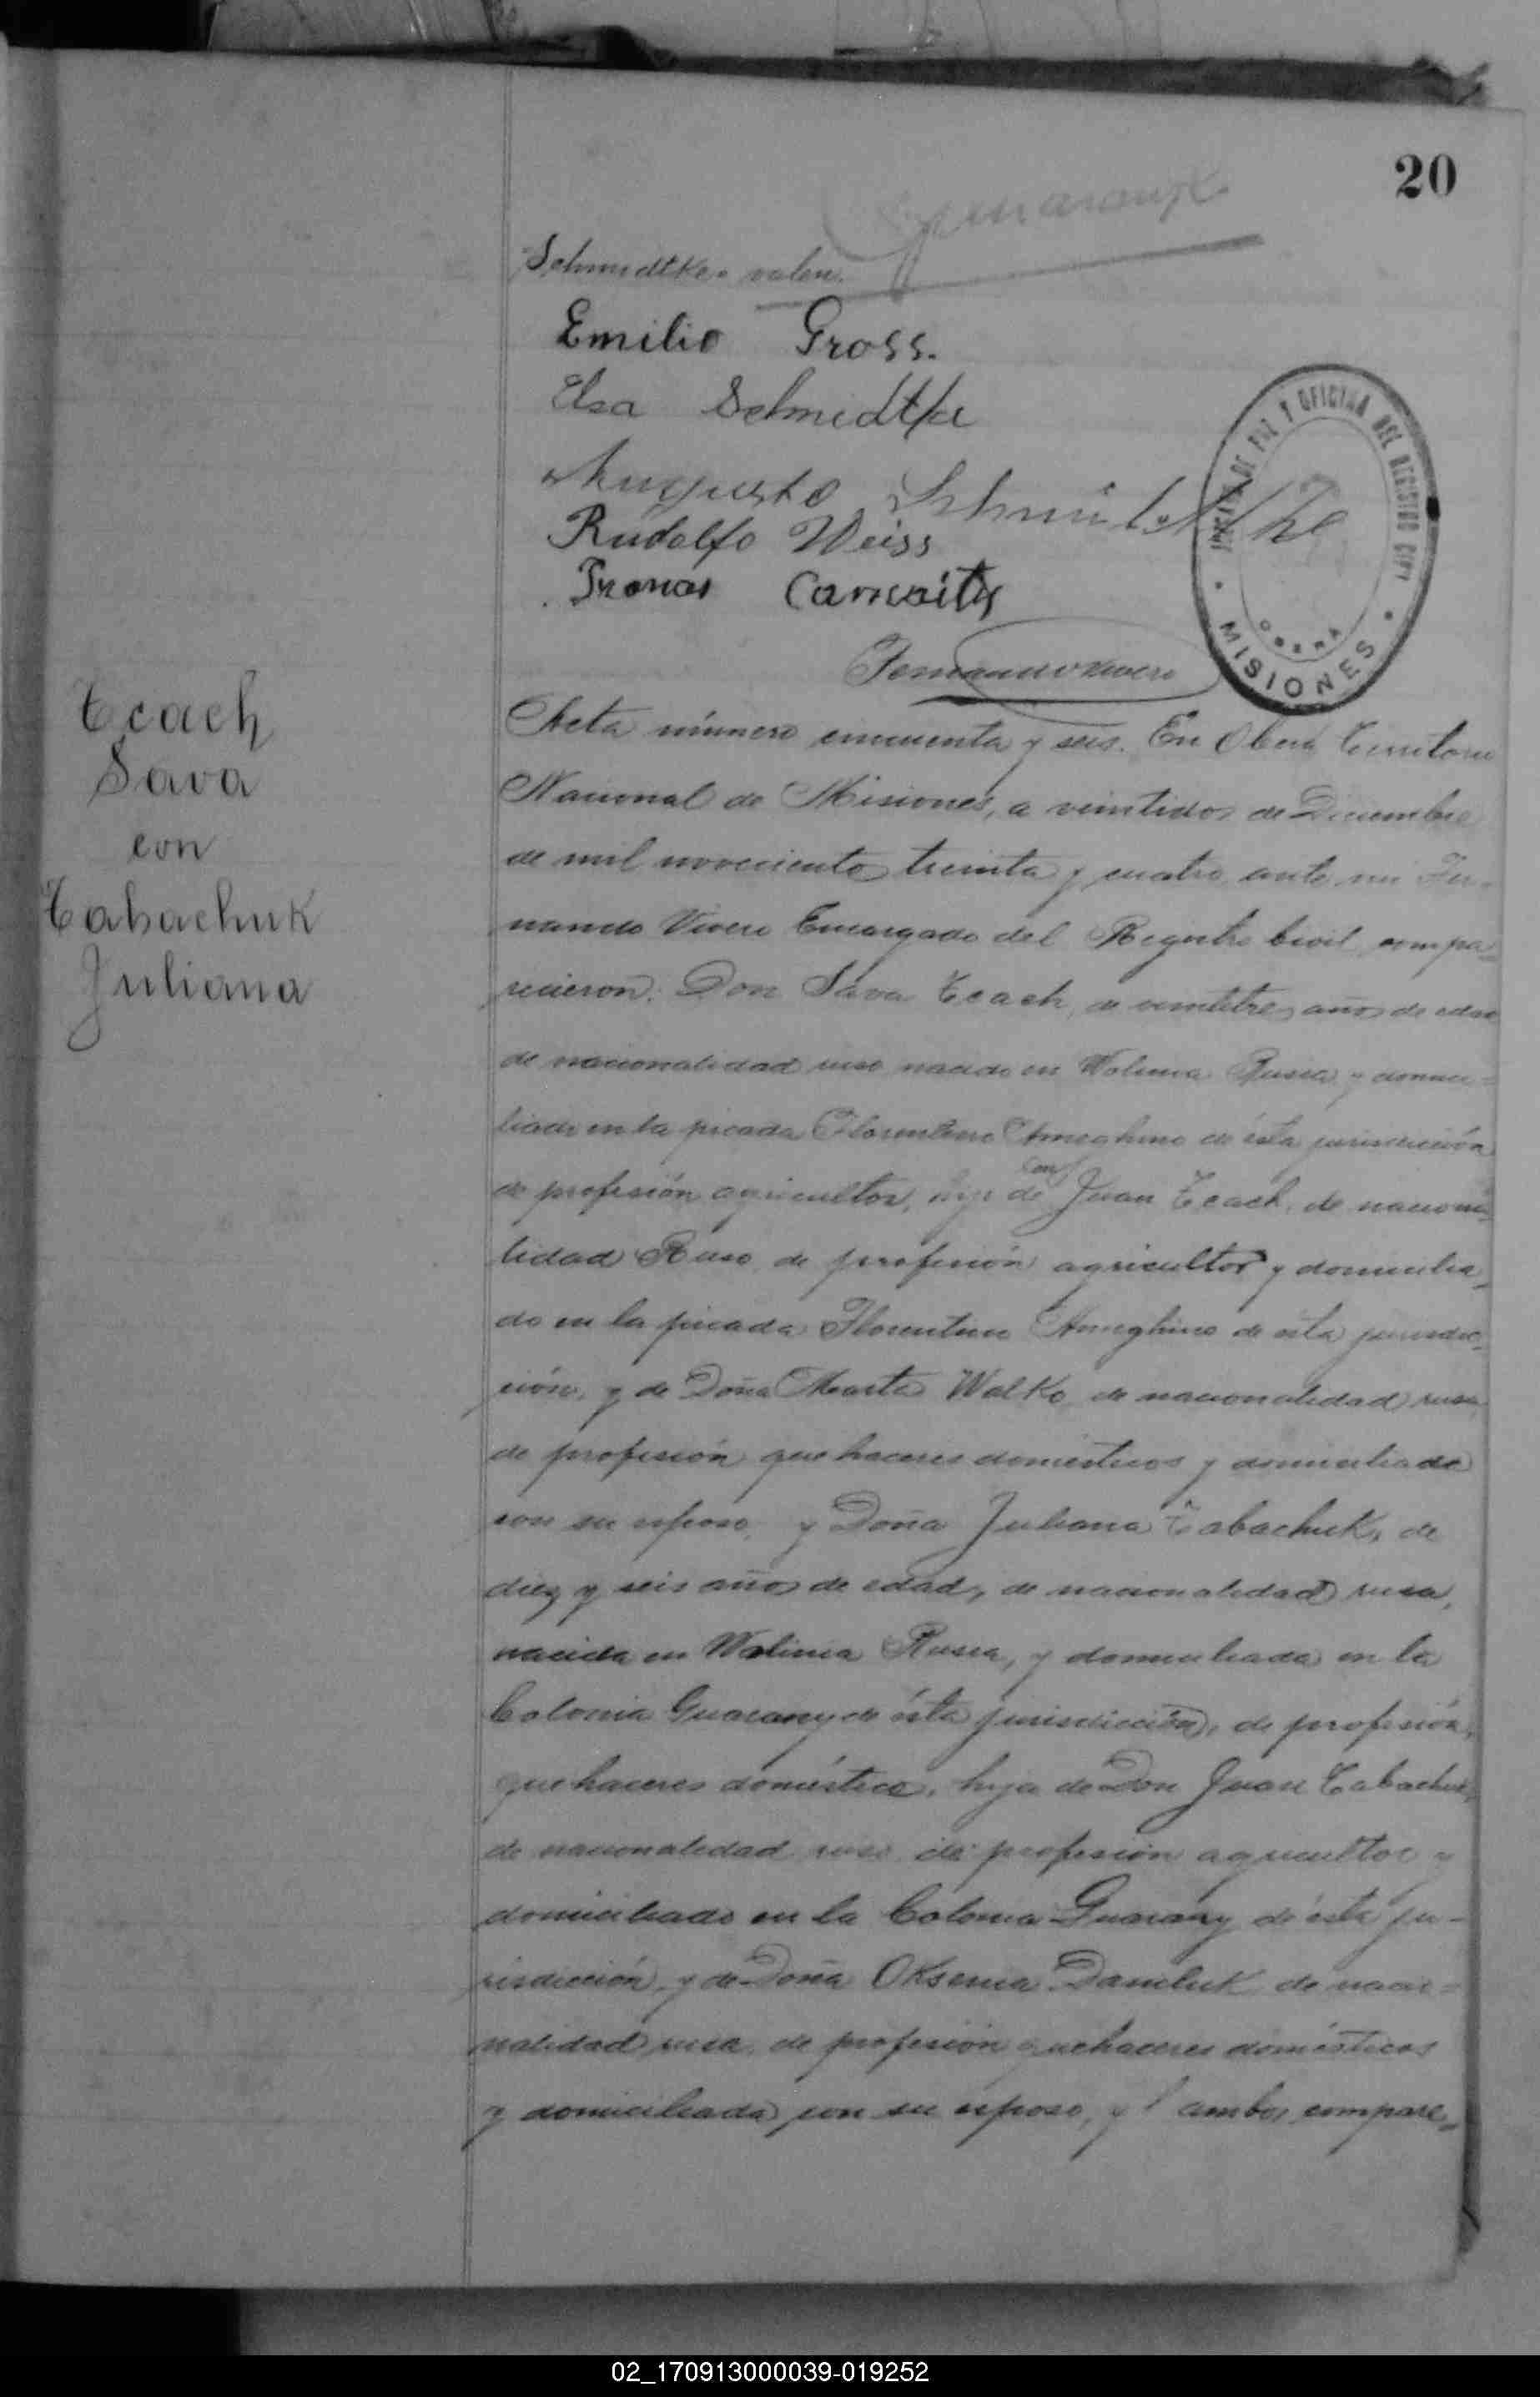 20
Schmidtke = valen.
Emilio Gross.
Elsa Schmidtke
Augusto Schmidtke
Rudolfo Weiss
Pronas
JUZGADO DE PAZ Y OFICINA DEL REGISTRO CIVIL
OBERA
MISIONES
Fernando Vivero
Tcach
Sava
con
Tabachuk
Juliana
Acta número cincuenta y seis. En Oberá Territorio
Nacional de Misiones, a veintidos de Diciembre
de mil novecientos treinta y cuatro, ante mi Fer-
nando Vivero Encargado del Registro Civil compa-
recieron: Don Sava Tcach, de veintitres años de edad
de nacionalidad ruso nacido en Wolinia Rusia y domici-
liado en la picada Florentino Ameghino de ésta jurisdicción
de profesión agricultor, hijo de Don Juan Tcach, de naciona-
lidad Ruso, de profesión agricultor y domicilia-
do en la picada Florentino Ameghino de ésta jurisdic-
ción, y de Doña Marta Walko, de nacionalidad rusa,
de profesión quehaceres domésticos y domiciliada
con su esposo, y Doña Juliana Tabachuk, de
diez y seis años de edad, de nacionalidad rusa,
nacida en Wolinia Rusia, y domiciliada en la
Colonia Guarany de ésta jurisdicción, de profesión,
quehaceres doméstico, hija de Don Juan Tabachuk,
de nacionalidad ruso de profesión agricultor y
domiciliado en la Colonia Guarany de ésta ju-
risdicción, y de Doña Oksenia Daniluk de nacio-
nalidad rusa, de profesión quehaceres domésticos
y domiciliada con su esposo, y ambos compare-
02_170913000039-019252